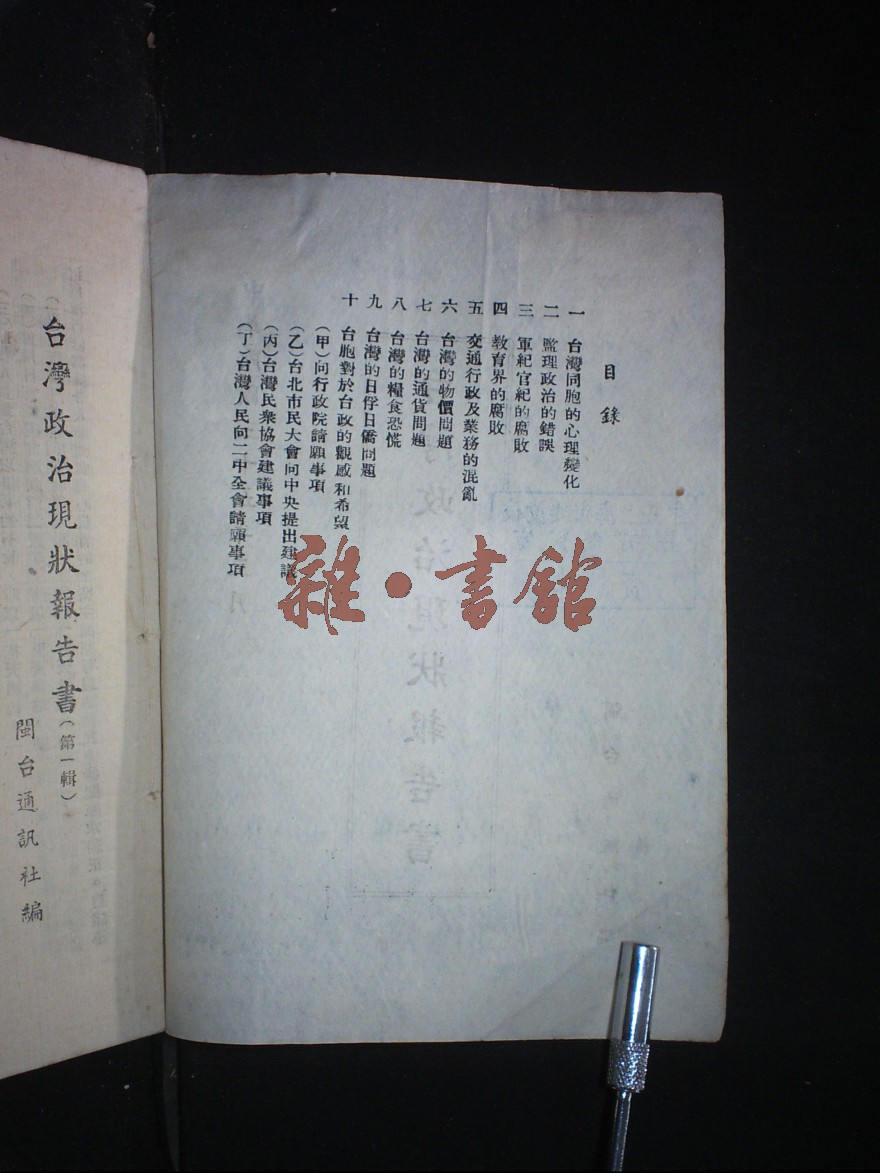 目錄
一 台灣同胞的心理變化
二 監理政治的錯誤
三 軍紀官紀的腐敗
四 教育界的腐敗
五 交通行政及業務的混亂
六 台灣的物價問題
七 台灣的通貨問題
八 台灣的糧食恐慌
九 台灣的日俘日僑問題
十 台胞對於台政的觀感和希望
(甲)向行政院請願事項
(乙)台北市民大會向中央提出建議
(丙)台灣民衆協會建議事項
(丁)台灣人民向二中全會請願事項
台灣政治現狀報告書(第一輯)
閩台通訊社編
雜·書館